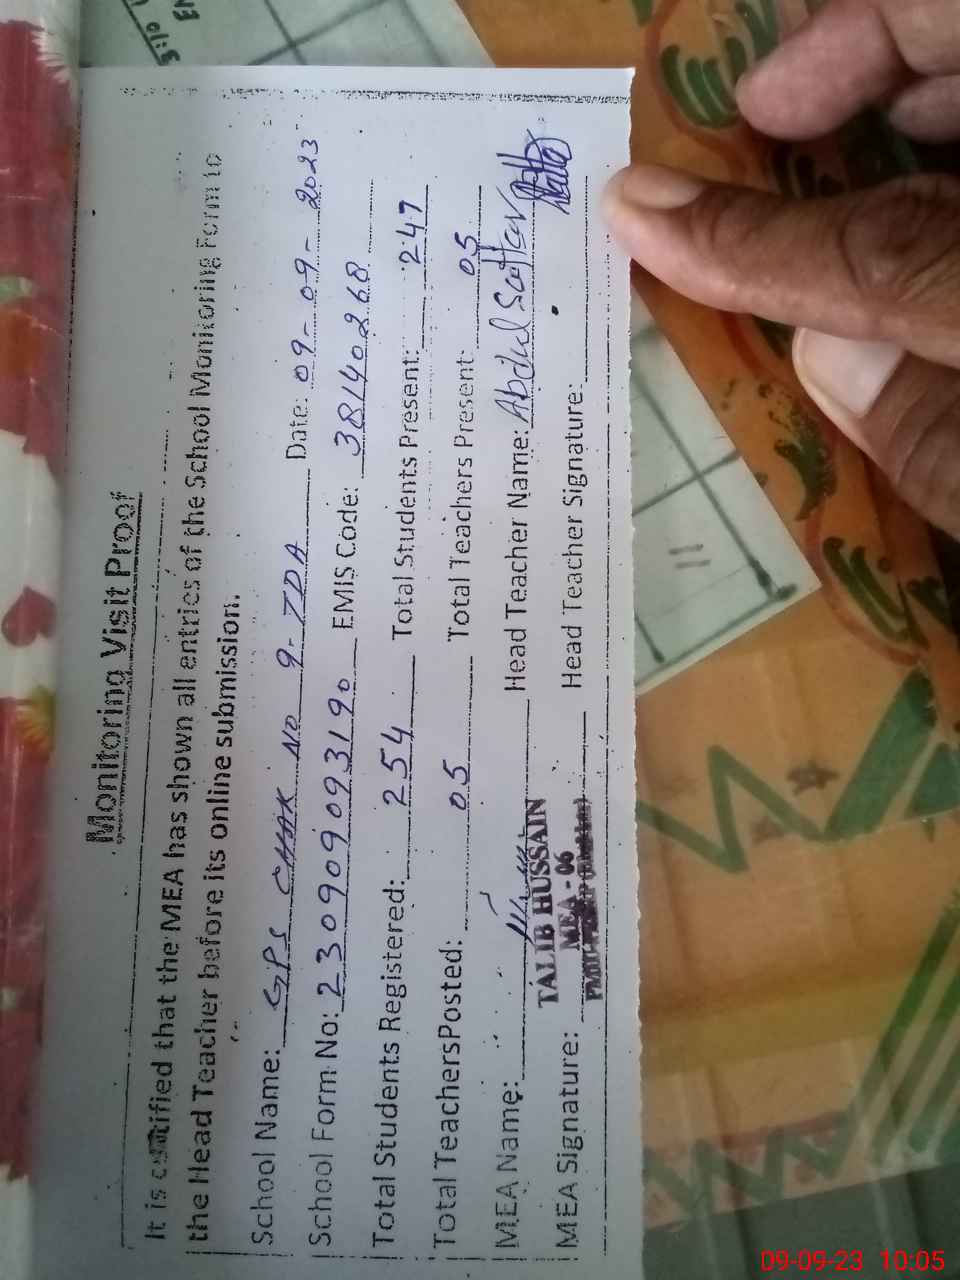 Monitoring Visit Proof
It is certified that the MEA has shown all entries of the School Monitoring Form to
the Head Teacher before its online submission.
School Name: GPS CHAK NO 9-TDA Date: 09-09-2023
School Form No: 230909093190 EMIS Code: 38140268
Total Students Registered: 254 Total Students Present: 247
Total TeachersPosted: 05 Total Teachers Present: 05
MEA Name: Head Teacher Name: Abdul Sattar
TALIB HUSSAIN
MEA - 06
MEA Signature: Head Teacher Signature:
09-09-23 10:05